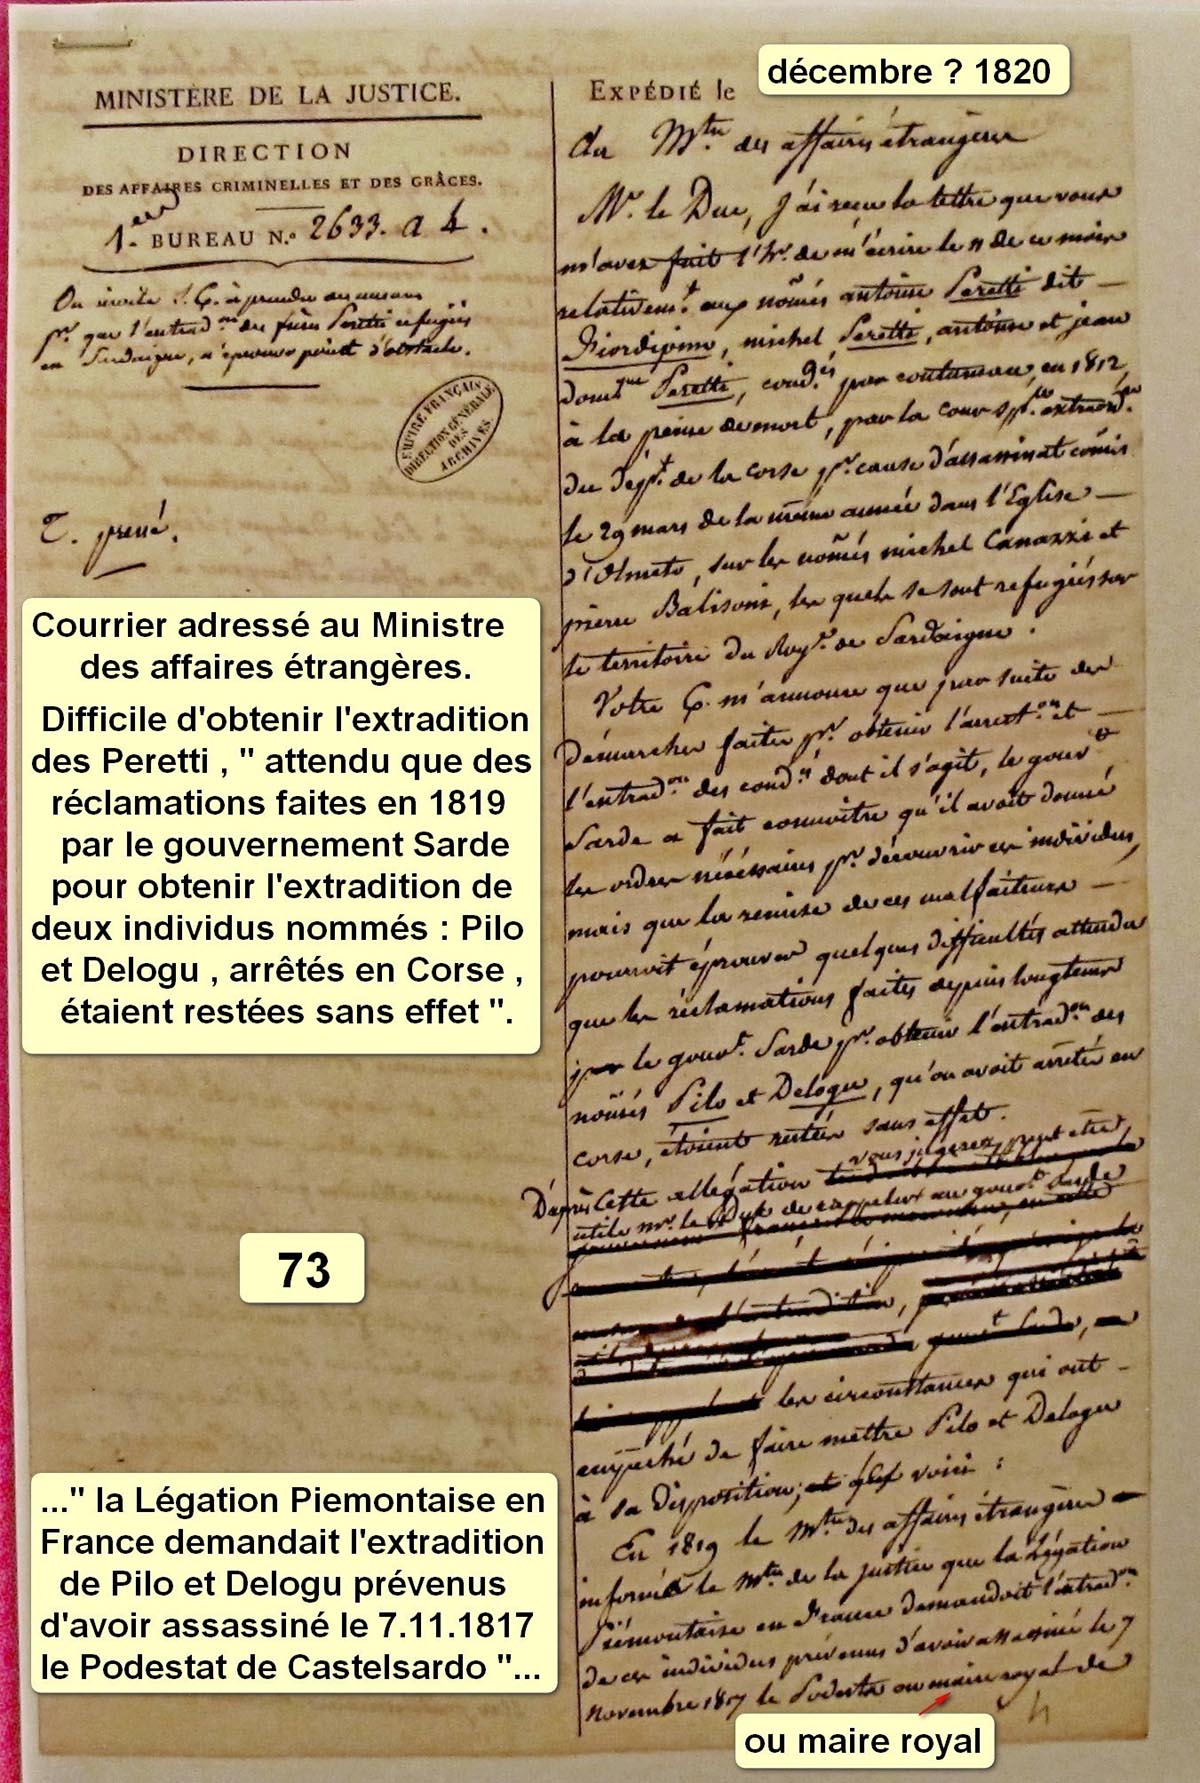 MINISTÈRE DE LA JUSTICE.
DIRECTION
DES AFFAIRES CRIMINELLES ET DES GRÂCES.
1.er BUREAU N.o 2633. a 4.
On invite S. E. à prendre des mesures
pr. que l'extrad.on des frères Peretti refugiés
en Sardaigne, n'éprouve point d'obstacle.
EMPIRE FRANÇAIS
DIRECTION GÉNÉRALE
DES
ARCHIVES.
T. pressé.
Courrier adressé au Ministre
des affaires étrangères.
Difficile d'obtenir l'extradition
des Peretti , " attendu que des
réclamations faites en 1819
par le gouvernement Sarde
pour obtenir l'extradition de
deux individus nommés : Pilo
et Delogu , arrêtés en Corse ,
étaient restées sans effet ".
73
..." la Légation Piemontaise en
France demandait l'extradition
de Pilo et Delogu prévenus
d'avoir assassiné le 7.11.1817
le Podestat de Castelsardo "...
EXPÉDIÉ le
décembre ? 1820
au Mtre. des affaires étrangères
Mr. le Duc, j'ai reçu la lettre que vous
m'avez fait l'hr. de m'écrire le 11 de ce mois
relativemt. aux només antoine Peretti dit —
Fiordispino, michel Peretti, antoine et jean
domque Peretti, condés. par contumace, en 1812,
à la peine de mort, par la cour sple. extraordre.
du dépt. de la corse pr. cause d'assassinat comis
le 29 mars de la même année dans l'Eglise —
d'Olmeto, sur les només michel Canazzi et
pierre Balisoni, les quels se sont refugiés sur
le territoire du Roye. de Sardaigne.
Votre E. m'annonce que par suite des
démarches faites pr. obtenir l'arrest.on et —
l'extrad.on des condés dont il s'agit, le gouvt
Sarde a fait connoître qu'il avoit donné
les ordres nécéssaires pr. découvrir ces individus,
mais que la remise de ces malfaiteurs —
pourroit éprouver quelques difficultés attendu
que les réclamations faites depuis longtems
par le gouvt. Sarde pr. obtenir l'extrad.on des
només Pilo et Delogu, qu'on avoit arrêtés en
corse, étoient restées sans effet.
D'après Cette allégation vous jugerez peut être
utile Mr. le Duc de rappeler au gouvt. Sarde
l'extradition,
gouvt Sarde,
les circonstances qui ont —
empêché de faire mettre Pilo et Delogu
à sa disposition; voici :
En 1819 le Mtre. des affaires étrangères —
informa le Mtre. de la justice que la Légation
Piémontaise en France demandoit l'extrad.on
de ces individus prévenus d'avoir assassiné le 7
novembre 1817 le Podesta ou maire royal de
ou maire royal